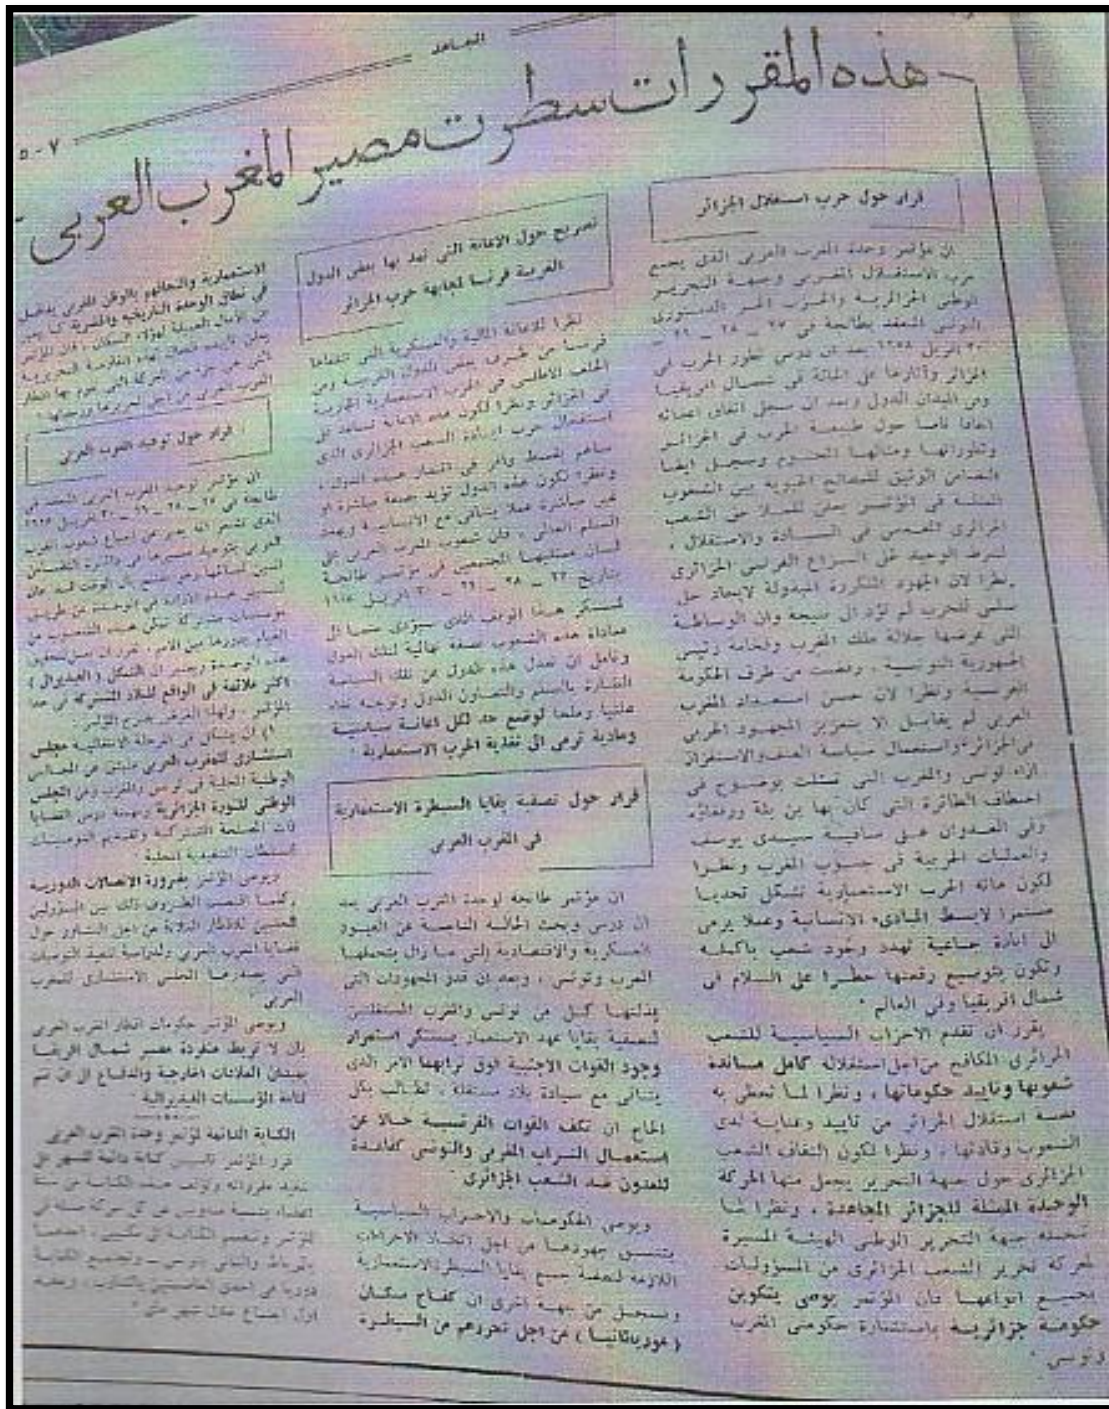 المجاهد
٧-٥
هذه المقررات سطرت مصير المغرب العربي
قرار حول حرب استقلال الجزائر
ان مؤتمر وحدة المغرب العربي الذي يجمع
حزب الاستقلال المغربي وجبهة التحرير
الوطني الجزائرية والحزب الحر الدستوري
التونسي المنعقد بطانجة في ٢٧ ــ ٢٨ ــ ٢٩ ــ
٣٠ افريل ١٩٥٨ بعد ان درس تطور الحرب في
الجزائر وآثارها على الحالة في شمال افريقيا
وفي الميدان الدولي وبعد ان سجل اتفاق اعضائه
اتفاقا تاما حول طبيعة الحرب في الجزائر
وتطوراتها ومآلها المحتوم وسجل ايضا
التضامن الوثيق للمصالح الحيوية بين الشعوب
الممثلة في المؤتمر يعلن للملا حق الشعب
الجزائري المقدس في السيادة والاستقلال ،
الشرط الوحيد لحل النزاع الفرنسي الجزائري
ونظرا لان الجهود المتكررة المبذولة لايجاد حل
سلمي للحرب لم تؤد الى نتيجة وان الوساطة
التي عرضها جلالة ملك المغرب وفخامة رئيس
الجمهورية التونسية ، رفضت من طرف الحكومة
الفرنسية ونظرا لان حسن استعداد المغرب
العربي لم يقابل الا بتعزيز المجهود الحربي
في الجزائر واستعمال سياسة العنف والاستفزاز
ازاء تونس والمغرب التي تمثلت بوضوح في
اختطاف الطائرة التي كان بها بن بلة ورفقاؤه
وفي العدوان على ساقية سيدي يوسف
والعمليات الحربية في جنوب المغرب ونظرا
لكون هاته الحرب الاستعمارية تشكل تحديا
مستمرا لابسط المبادىء الانسانية وعملا يرمي
الى ابادة جماعية تهدد وجود شعب باكمله
وتكون بتوسيع رقعتها خطرا على السلام في
شمال افريقيا وفي العالم .
يقرر ان تقدم الاحزاب السياسية للشعب
الجزائري المكافح من اجل استقلاله كامل مساندة
شعوبها وتاييد حكوماتها ، ونظرا لما تحظى به
قضية استقلال الجزائر من تاييد وعناية لدى
الشعوب وقادتها ، ونظرا لكون التفاف الشعب
الجزائري حول جبهة التحرير يجعل منها الحركة
الوحيدة الممثلة للجزائر المجاهدة ، ونظرا لما
تتحمله جبهة التحرير الوطني الهيئة المسيرة
لحركة تحرير الشعب الجزائري من المسؤوليات
بجميع انواعها فان المؤتمر يوصي بتكوين
حكومة جزائرية باستشارة حكومتي المغرب
وتونس .
تصريح حول الاعانة التي تمد بها بعض الدول
الغربية فرنسا لمجابهة حرب الجزائر
نظرا للاعانة المالية والعسكرية التي تتلقاها
فرنسا من طرف بعض الدول الغربية ومن
الحلف الاطلسي في الحرب الاستعمارية الجارية
في الجزائر ونظرا لكون هذه الاعانة تساعد على
استفحال حرب ابادة الشعب الجزائري الذي
ساهم بقسط وافر في انتصار هذه الدول ،
ونظرا لكون هذه الدول تؤيد بصفة مباشرة او
غير مباشرة عملا يتنافى مع الانسانية ويهدد
السلم العالمي ، فان شعوب المغرب العربي على
لسان ممثليها المجتمعين في مؤتمر طانجة
بتاريخ ٢٧ ــ ٢٨ ــ ٢٩ ــ ٣٠ افريل ١٩٥٨
تستنكر هذا الموقف الذي سيؤدي حتما الى
معاداة هذه الشعوب بصفة نهائية لتلك الدول
وتأمل ان تعدل هذه الدول عن تلك السياسة
الضارة بالسلم والتعاون الدولي وتوجه نداء
علنيا وملحا لوضع حد لكل اعانة سياسية
ومادية ترمي الى تغذية الحرب الاستعمارية .
قرار حول تصفية بقايا السيطرة الاستعمارية
في المغرب العربي
ان مؤتمر طانجة لوحدة المغرب العربي بعد
ان درس وبحث الحالة الناجمة عن القيود
العسكرية والاقتصادية التي ما زال يتحملها
المغرب وتونس ، وبعد ان قدر المجهودات التي
بذلتها كل من تونس والمغرب المستقلتين
لتصفية بقايا عهد الاستعمار يستنكر استمرار
وجود القوات الاجنبية فوق ترابهما الامر الذي
يتنافى مع سيادة بلاد مستقلة ، لطالب بكل
الحاح ان تكف القوات الفرنسية حالا عن
استعمال التراب المغربي والتونسي كقاعدة
للعدون ضد الشعب الجزائري
ويوصي الحكومات والاحزاب السياسية
بتنسيق جهودها من اجل اتخاذ الاجراءات
اللازمة لتصفية جميع بقايا السيطرة الاستعمارية
ويسجل من جهة اخرى ان كفاح سكان
( موريطانيا ) من اجل تحررهم من السيطرة
الاستعمارية والتحاقهم بالوطن المغربي يدخل
في نطاق الوحدة التاريخية والحضرية
قرار حول توحيد المغرب العربي
ان مؤتمر توحيد المغرب العربي المنعقد في
طانجة في ٢٧ ــ ٢٨ ــ ٢٩ ــ ٣٠ افريل ١٩٥٨
هذه الوحدة ويعتبر ان الشكل ( الفيديرالي )
اكثر ملائمة في الواقع للبلاد المشتركة في هذا
المؤتمر . ولهذا الغرض يقترح المؤتمر
١) ان يشكل في المرحلة الانتقالية مجلس
استشاري للمغرب العربي منبثق عن المجالس
الوطنية المحلية في تونس والمغرب وعن المجلس
الوطني للثورة الجزائرية ومهمته درس القضايا
ذات المصلحة المشتركة وتقديم التوصيات
للسلطات التنفيذية المحلية .
ويوصي المؤتمر بضرورة الاتصالات الدورية
وكلما اقتضت الظروف ذلك بين المسؤولين
المحليين للاقطار الثلاثة من اجل التشاور حول
قضايا المغرب العربي ولدراسة تنفيذ التوصيات
التي يصدرها المجلس الاستشاري للمغرب
العربي .
ويوصي المؤتمر حكومات اقطار المغرب العربي
بان لا تربط منفردة مصير شمال افريقيا
بميدان العلاقات الخارجية والدفاع الى ان تتم
اقامة المؤسسات الفيديرالية .
الكتابة الدائمة لمؤتمر وحدة المغرب العربي
قرر المؤتمر تاسيس كتابة دائمة للسهر على
تنفيذ مقرراته وتؤلف هذه الكتابة من ستة
اعضاء بنسبة مندوبين عن كل حركة ممثلة في
المؤتمر وتنقسم الكتابة الى مكتبين ، احدهما
بالرباط والثاني بتونس ــ وتجتمع الكتابة
دوريا في احدى العاصمتين بالتناوب ، وتعقد
اول اجتماع خلال شهر ماي .